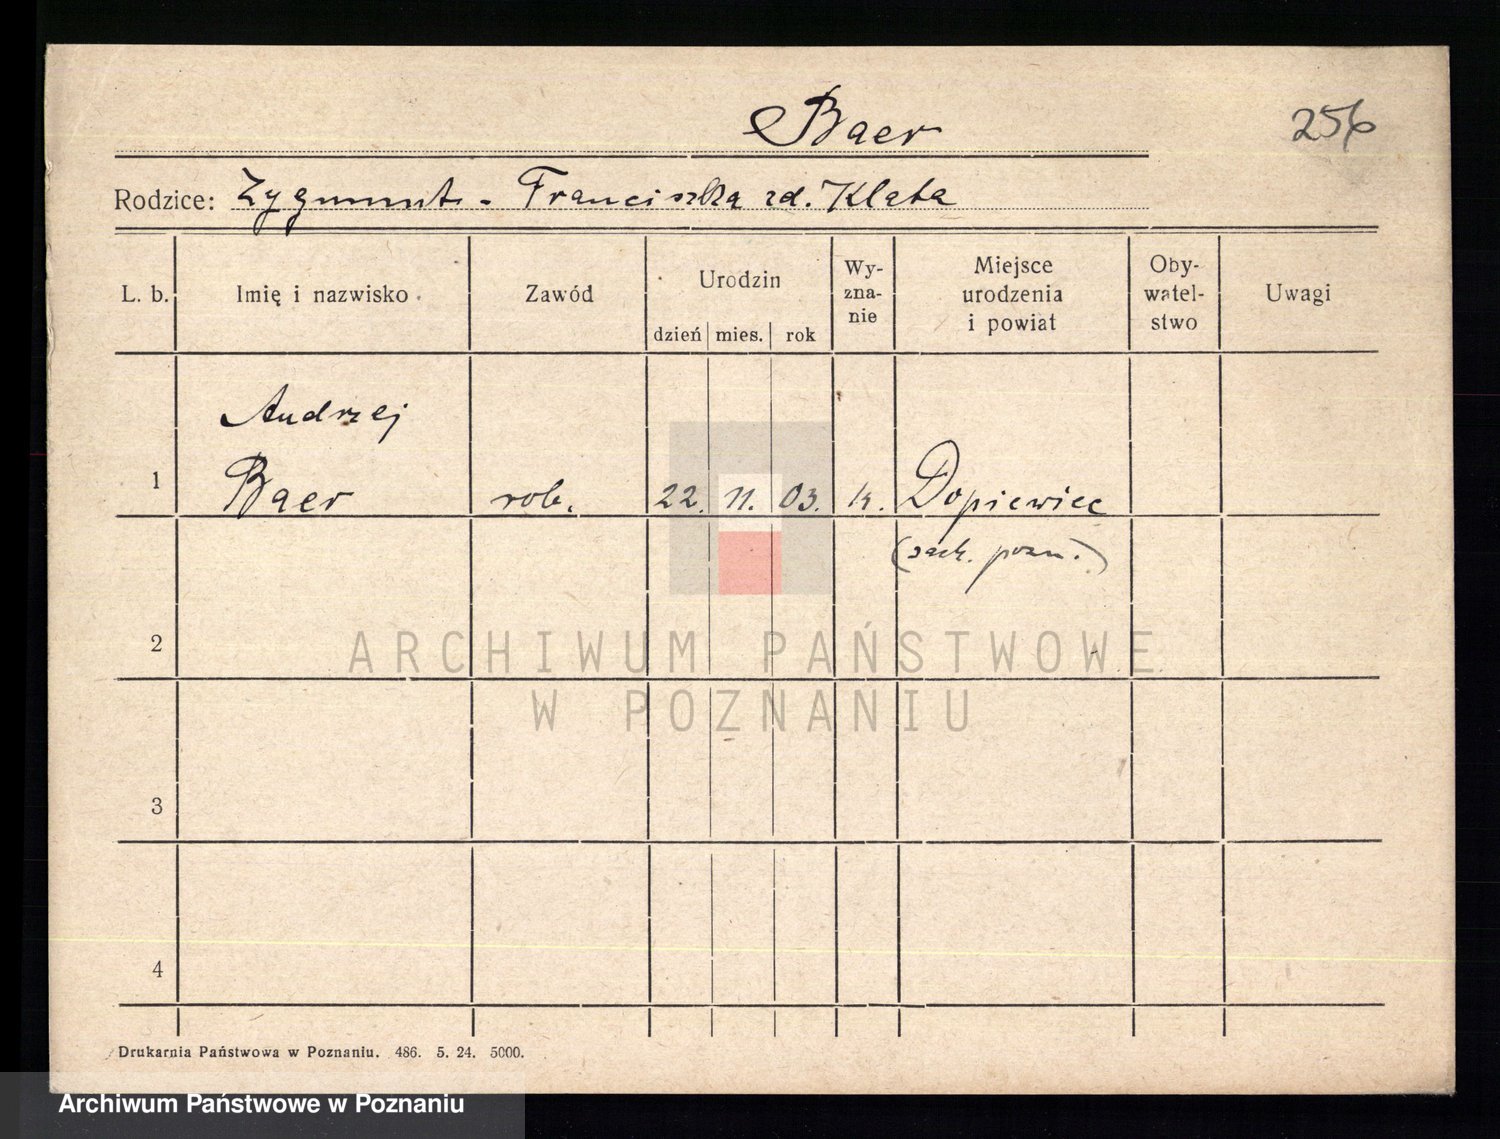 Baer
256
Rodzice: Zygmunt - Franciszka zd. Klata
L. b. Imię i nazwisko Zawód Urodzin dzień mies. rok Wy-zna-nie Miejsce urodzenia i powiat Oby-watel-stwo Uwagi
Andrzej
1 Baer rob. 22. 11. 03. k. Dopiewiec
(zach. pozn.)
2
ARCHIWUM PAŃSTWOWE
W POZNANIU
3
4
Drukarnia Państwowa w Poznaniu. 486. 5. 24. 5000.
Archiwum Państwowe w Poznaniu